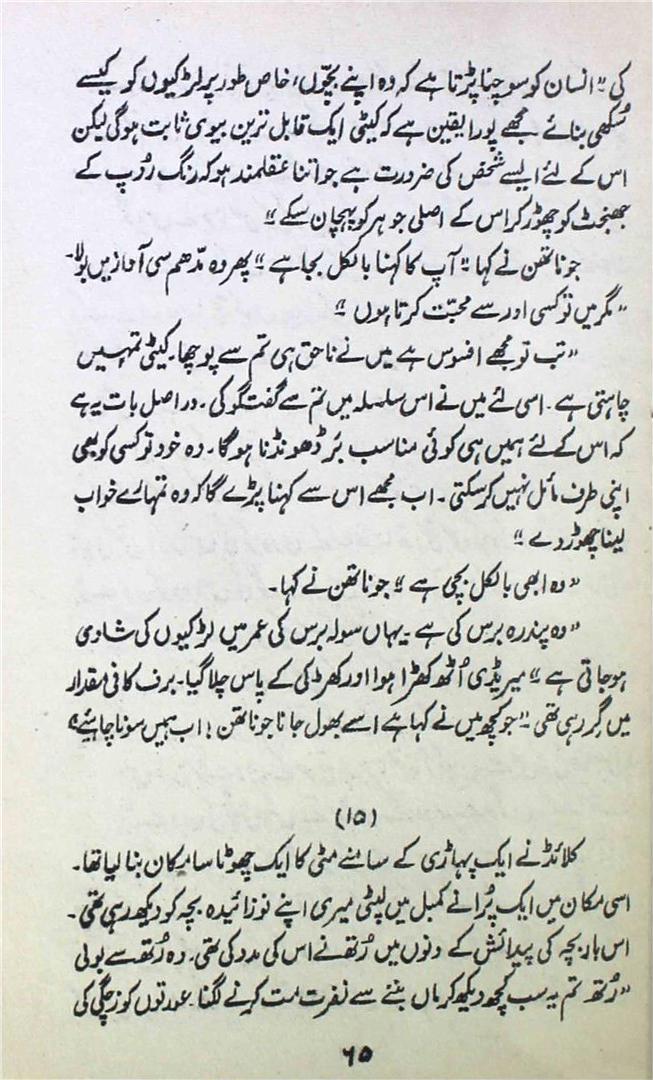 کی "انسان کو سوچنا پڑتا ہے کہ وہ اپنے بچّوں، خاص طور پر لڑکیوں کو کیسے
سُکھی بنائے۔ مجھے پورا یقین ہے کہ کیٹی ایک قابل ترین بیوی ثابت ہوگی لیکن
اس کے لئے ایسے شخص کی ضرورت ہے جو اتنا عقلمند ہو کہ رنگ رُوپ کے
جھنجٹ کو چھوڑ کر اس کے اصلی جوہر کو پہچان سکے"
جوناتھن نے کہا "آپ کا کہنا بالکل بجا ہے" پھر وہ مدّھم سی آواز میں بولا۔
"مگر میں تو کسی اور سے محبّت کرتا ہوں"
"تب تو مجھے افسوس ہے میں نے ناحق ہی تم سے پوچھا۔ کیٹی تمہیں
چاہتی ہے۔ اسی لئے میں نے اس سلسلہ میں تم سے گفتگو کی۔ در اصل بات یہ ہے
کہ اس کے لئے ہمیں ہی کوئی مناسب بَر ڈھونڈنا ہوگا۔ وہ خود تو کسی کو بھی
اپنی طرف مائل نہیں کر سکتی۔ اب مجھے اس سے کہنا پڑے گا کہ وہ تمہارے خواب
لینا چھوڑ دے"
"وہ ابھی بالکل بچی ہے" جوناتھن نے کہا۔
"وہ پندرہ برس کی ہے۔ یہاں سولہ برس کی عمر میں لڑکیوں کی شادی
ہو جاتی ہے" میریڈی اُٹھ کھڑا ہوا اور کھڑکی کے پاس چلا گیا۔ برف کافی مقدار
میں گر رہی تھی۔ "جو کچھ میں نے کہا ہے اسے بھول جانا جوناتھن! اب ہمیں سونا چاہئیے"
(۱۵)
کلائڈ نے ایک پہاڑی کے سامنے مٹی کا ایک چھوٹا سا مکان بنا لیا تھا۔
اسی مکان میں ایک پُرانے کمبل میں لپٹی میری اپنے نوزائیدہ بچہ کو دیکھ رہی تھی۔
اس بار بچہ کی پیدائش کے دنوں میں رُتھ نے اس کی مدد کی تھی۔ وہ رُتھ سے بولی
"رُتھ تم یہ سب کچھ دیکھ کر ماں بننے سے نفرت مت کرنے لگنا۔ عورتوں کو زچگی کی
۶۵